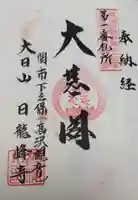 奉納経
第一番札所
大悲閣
関市下之保高沢観音
大日山 日龍峰寺